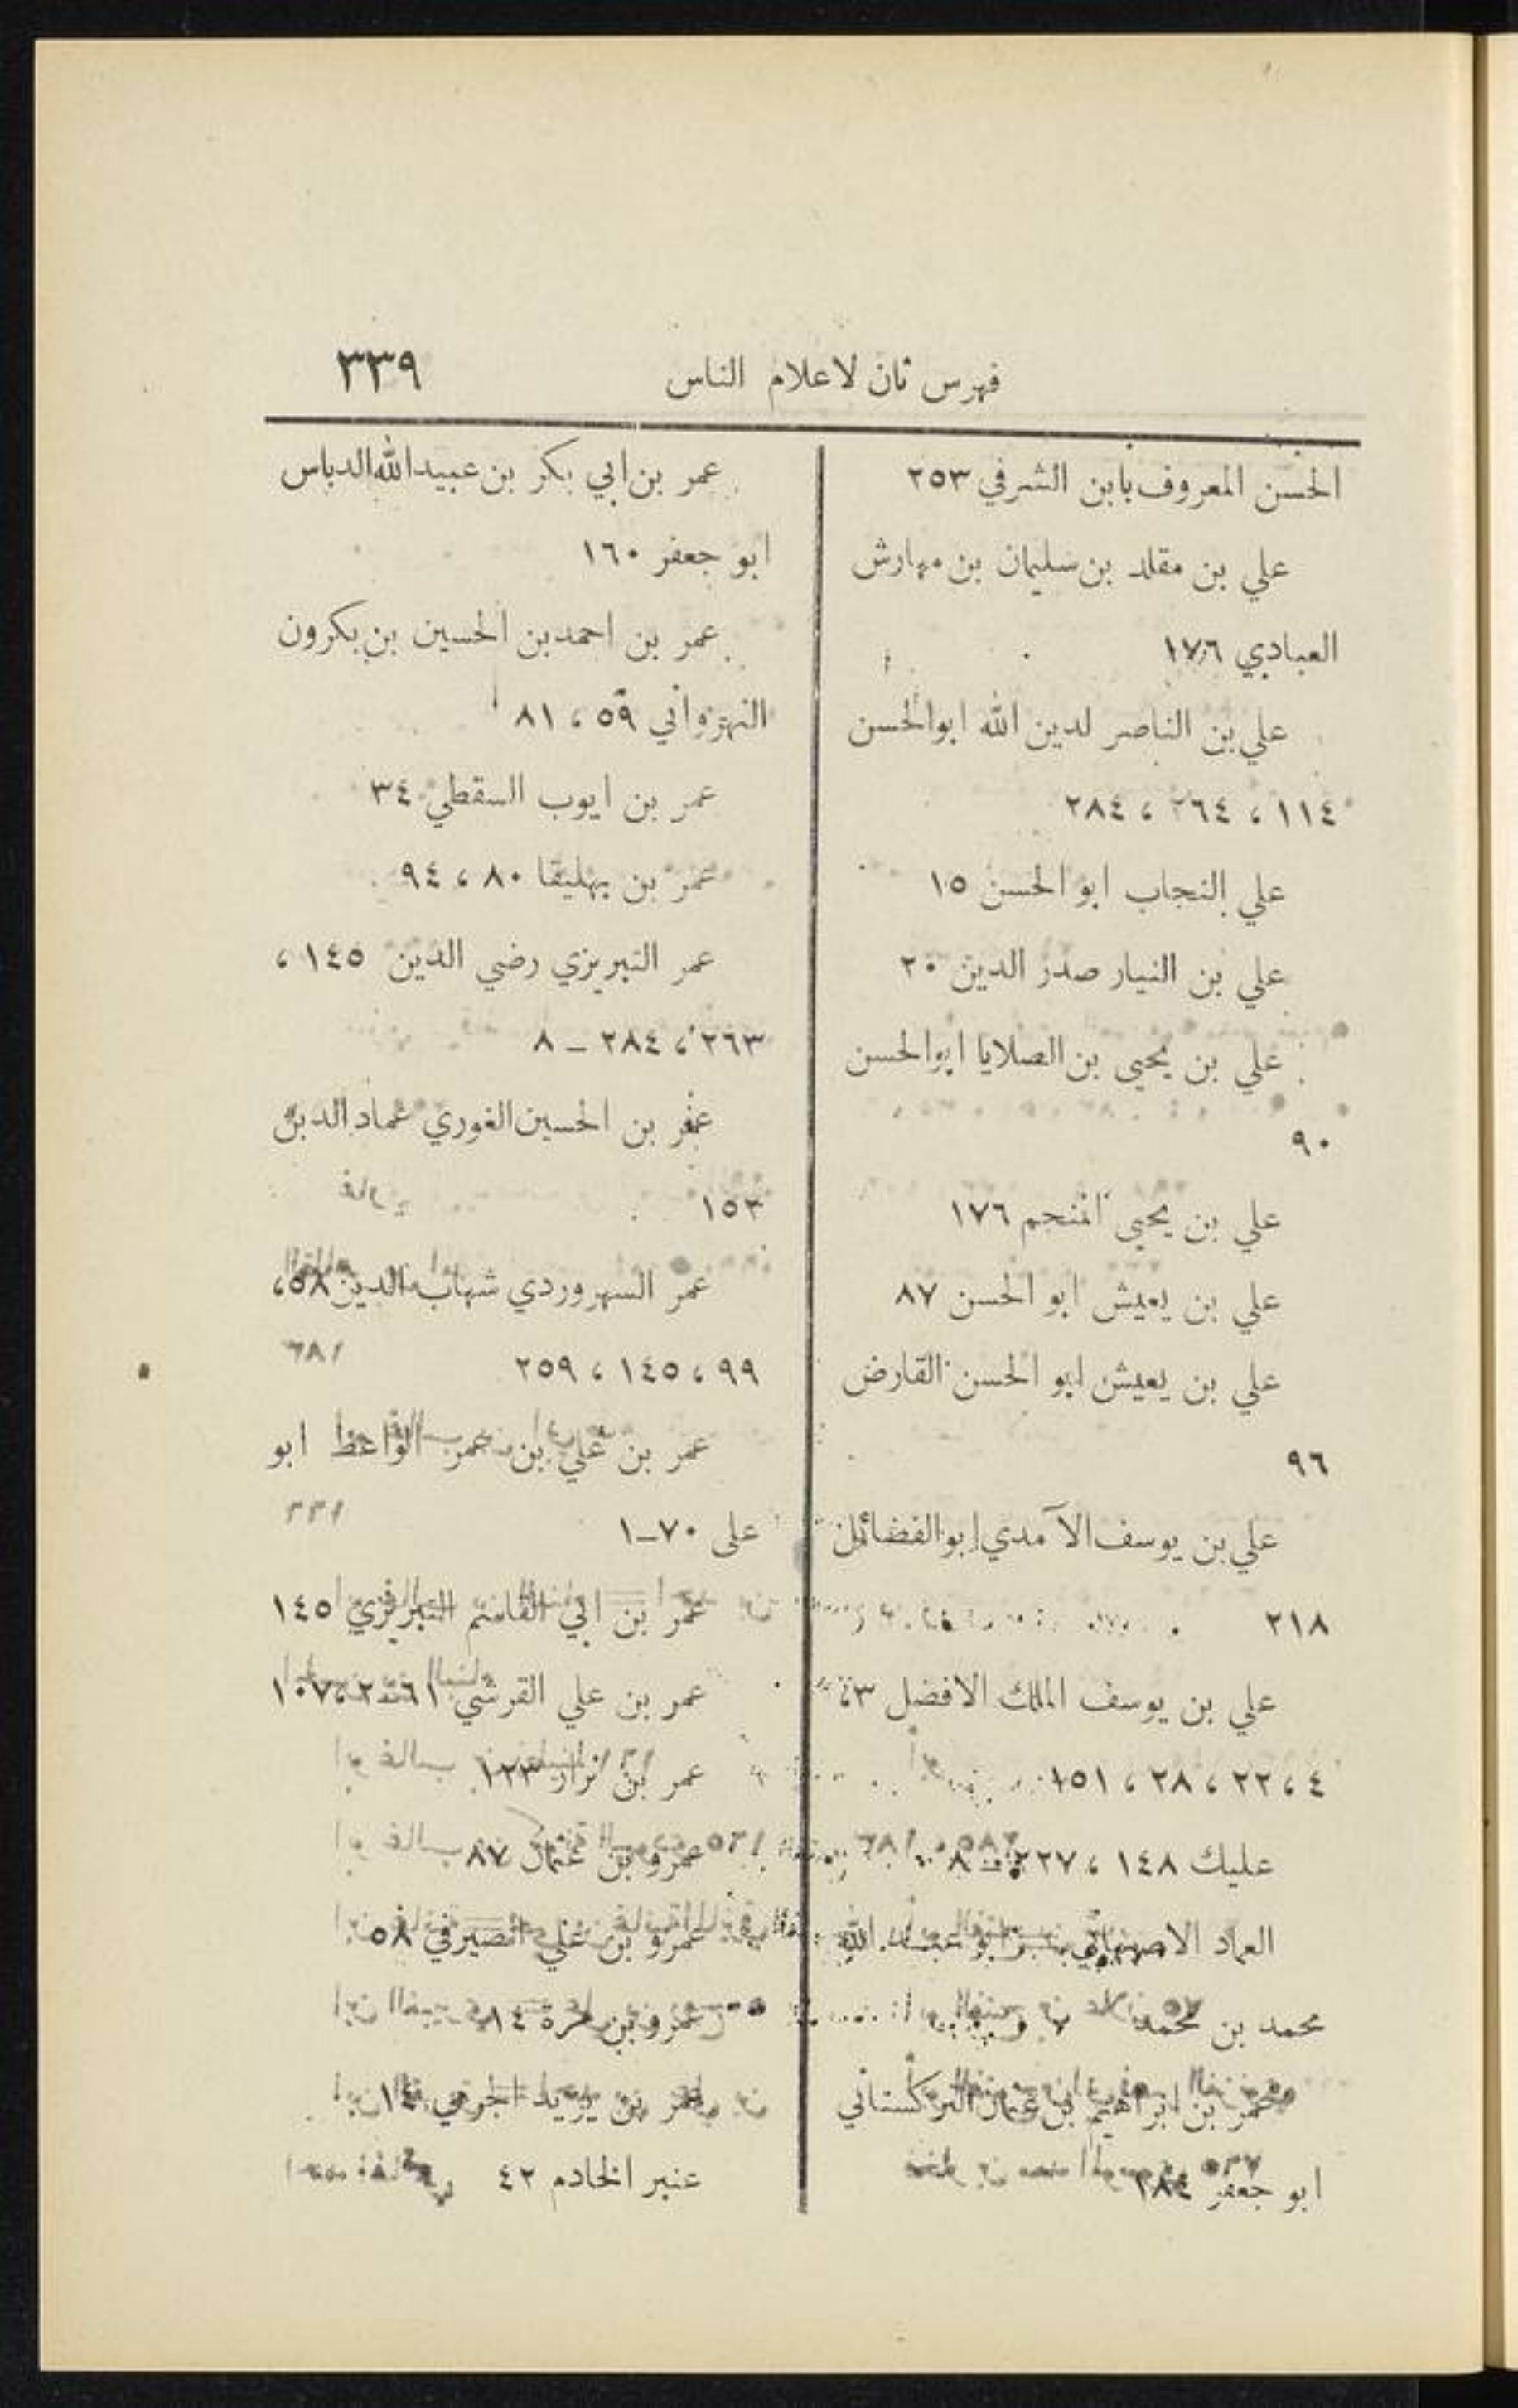 فهرس ثان لاعلام الناس ٣٣٩
الحسن المعروف بابن الشرفي ٢٥٣
علي بن مقلد بن سليمان بن مهارش
العبادي ١٧٦
علي بن الناصر لدين الله ابوالحسن
١١٤ ، ٢٦٤ ، ٢٨٤
علي النجاب ابو الحسن ١٥
علي بن النيار صدر الدين ٢٠
علي بن يحيى بن الصلايا ابوالحسن
٩٠
علي بن يحيى المنجم ١٧٦
علي بن يعيش ابو الحسن ٨٧
علي بن يعيش ابو الحسن القارض
٩٦
علي بن يوسف الآمدي ابوالفضائل
٢١٨
علي بن يوسف الملك الافضل
٤ ، ٢٢ ، ٢٨ ، ١٥١
عليك ١٤٨ ، ٢٢٧ ـ ٨
العماد الاصبهاني ابو عبد الله
محمد بن محمد ٧
عمر بن ابراهيم بن عثمان التركستاني
ابو جعفر ٢٨٤
عمر بن ابي بكر بن عبيدالله الدباس
ابو جعفر ١٦٠
عمر بن احمد بن الحسين بن بكرون
النهرواني ٥٩ ، ٨١
عمر بن ايوب السقطي ٣٤
عمر بن بهليقا ٨٠ ، ٩٤
عمر التبريزي رضي الدين ١٤٥ ،
٢٦٣ ، ٢٨٤ ـ ٨
عمر بن الحسين الغوري عماد الدين
١٥٣
عمر السهروردي شهاب الدين ٥٨ ،
٩٩ ، ١٤٥ ، ٢٥٩
عمر بن علي بن عمر الواعظ ابو
علي ٧٠ـ١
عمر بن ابي القاسم التبريزي ١٤٥
عمر بن علي القرشي ٦١ـ٢ ، ١٠٧
عمر بن نزار ١٢٣
عمرو بن عثمان ٨٧
عمرو بن علي الصيرفي ٥٨
عمرو بن مرة ١٤
عمر بن يزيد الجرمي ١٤
عنبر الخادم ٤٢